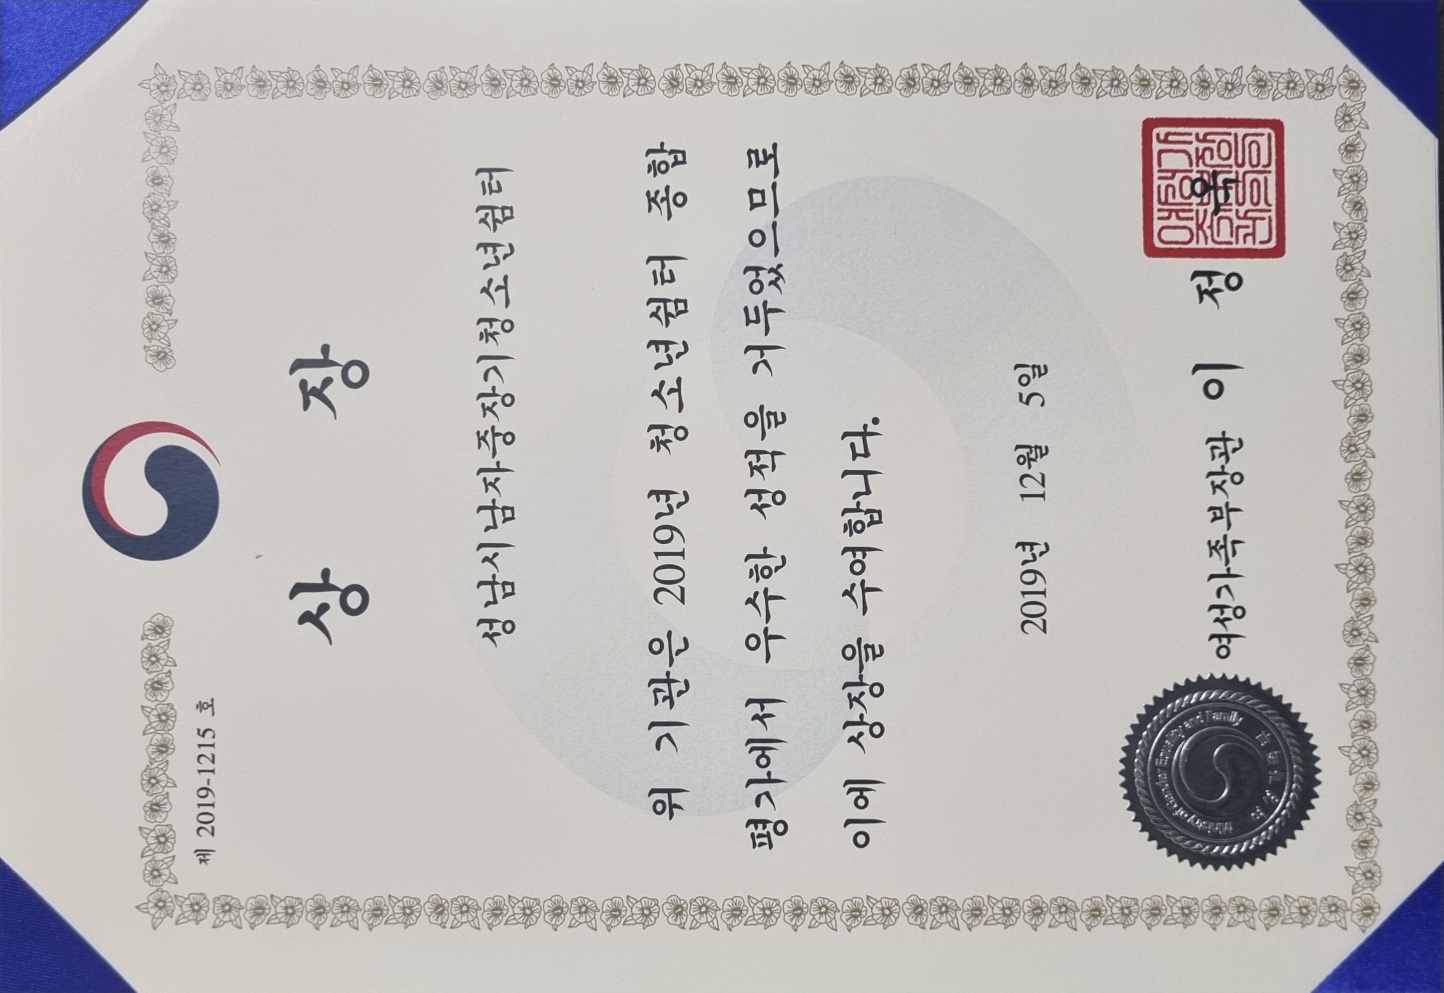 제 2019-1215 호
상 장
성남시남자중장기청소년쉼터
위 기관은 2019년 청소년쉼터 종합
평가에서 우수한 성적을 거두었으므로
이에 상장을 수여합니다.
2019년 12월 5일
여성가족부장관 이 정 옥
여성가족부장관인
Ministry of Gender Equality and Family
여성가족부